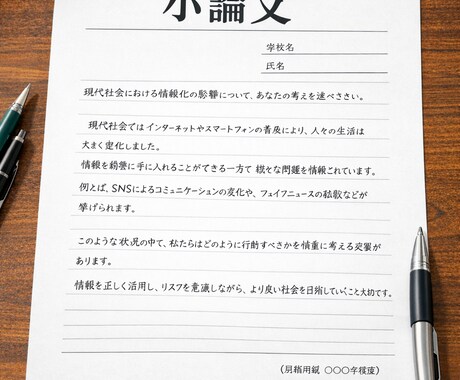 小論文
学校名
氏名
現代社会における情報化の影響について、あなたの考えを述べさい。
現代社会ではインターネットやスマートフォンの普及により、人々の生活は
大きく変化しました。
情報を に手に入れることができる一方で 々な問題を情報されています。
例えば、SNSによるコミュニケーションの変化や、フェイフニュースの などが
挙げられます。
このような状況の中で、私たちはどのように行動すべきかを慎重に考える必要が
あります。
情報を正しく活用し、リスフを意識しながら、より良い社会を目指していくこと大切です。